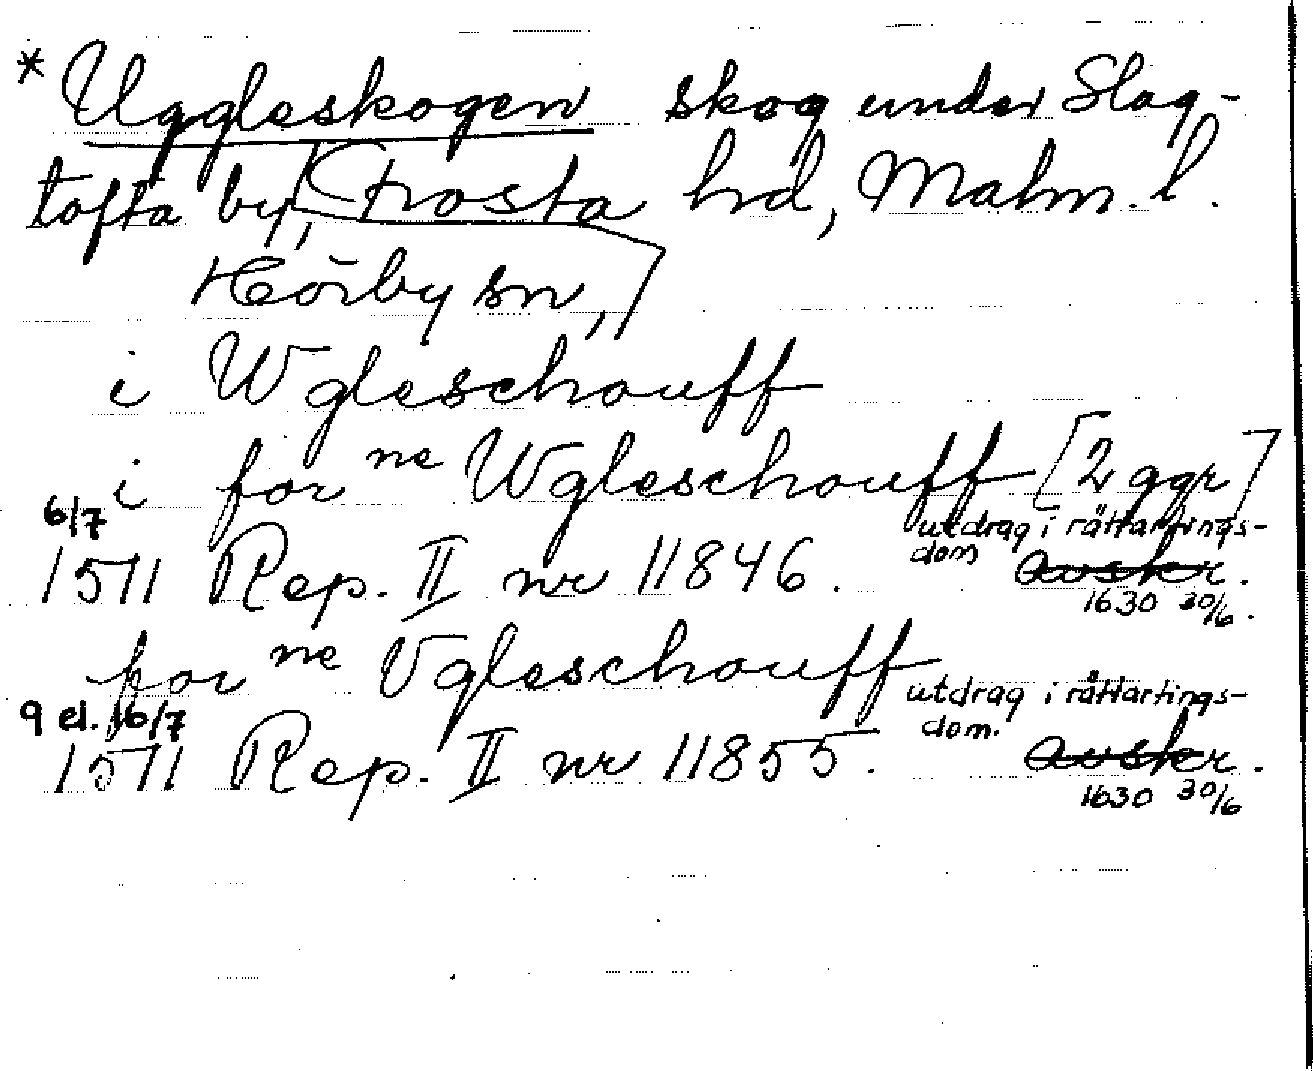 * Uggleskogen skog under Slag-
tofta by, Frosta hd, Malm. l.
Hörby sn,
i Wgleschouff
i for ne Wgleschouff [2 ggr]
6/7
1571 Rep. II nr 11846.
utdrag i råttartings-
dom
avskr.
1630 30/6.
for ne Vgleschouff
9 el. 16/7
1571 Rep. II nr 11855.
utdrag i råttartings-
dom.
avskr.
1630 30/6